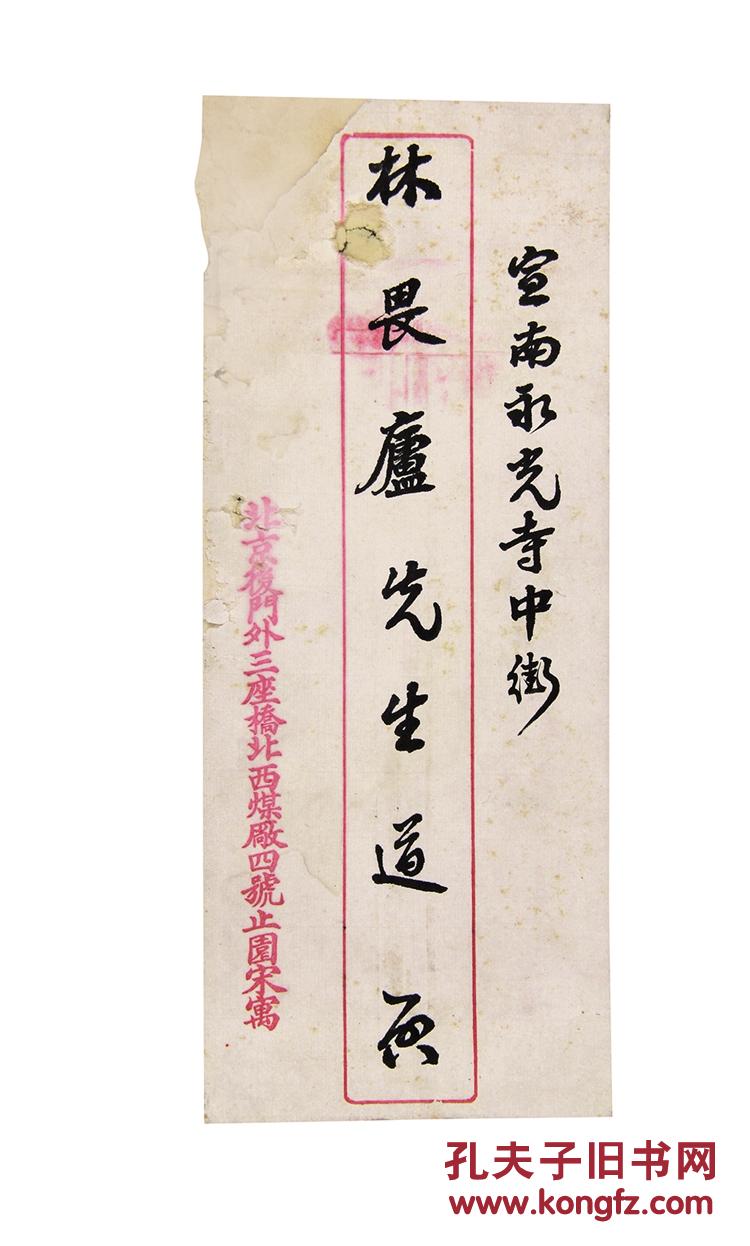 宣南永光寺中街
林畏廬先生道啓
北京後門外三座橋北西煤廠四號止園宋寓
孔夫子旧书网
www.kongfz.com